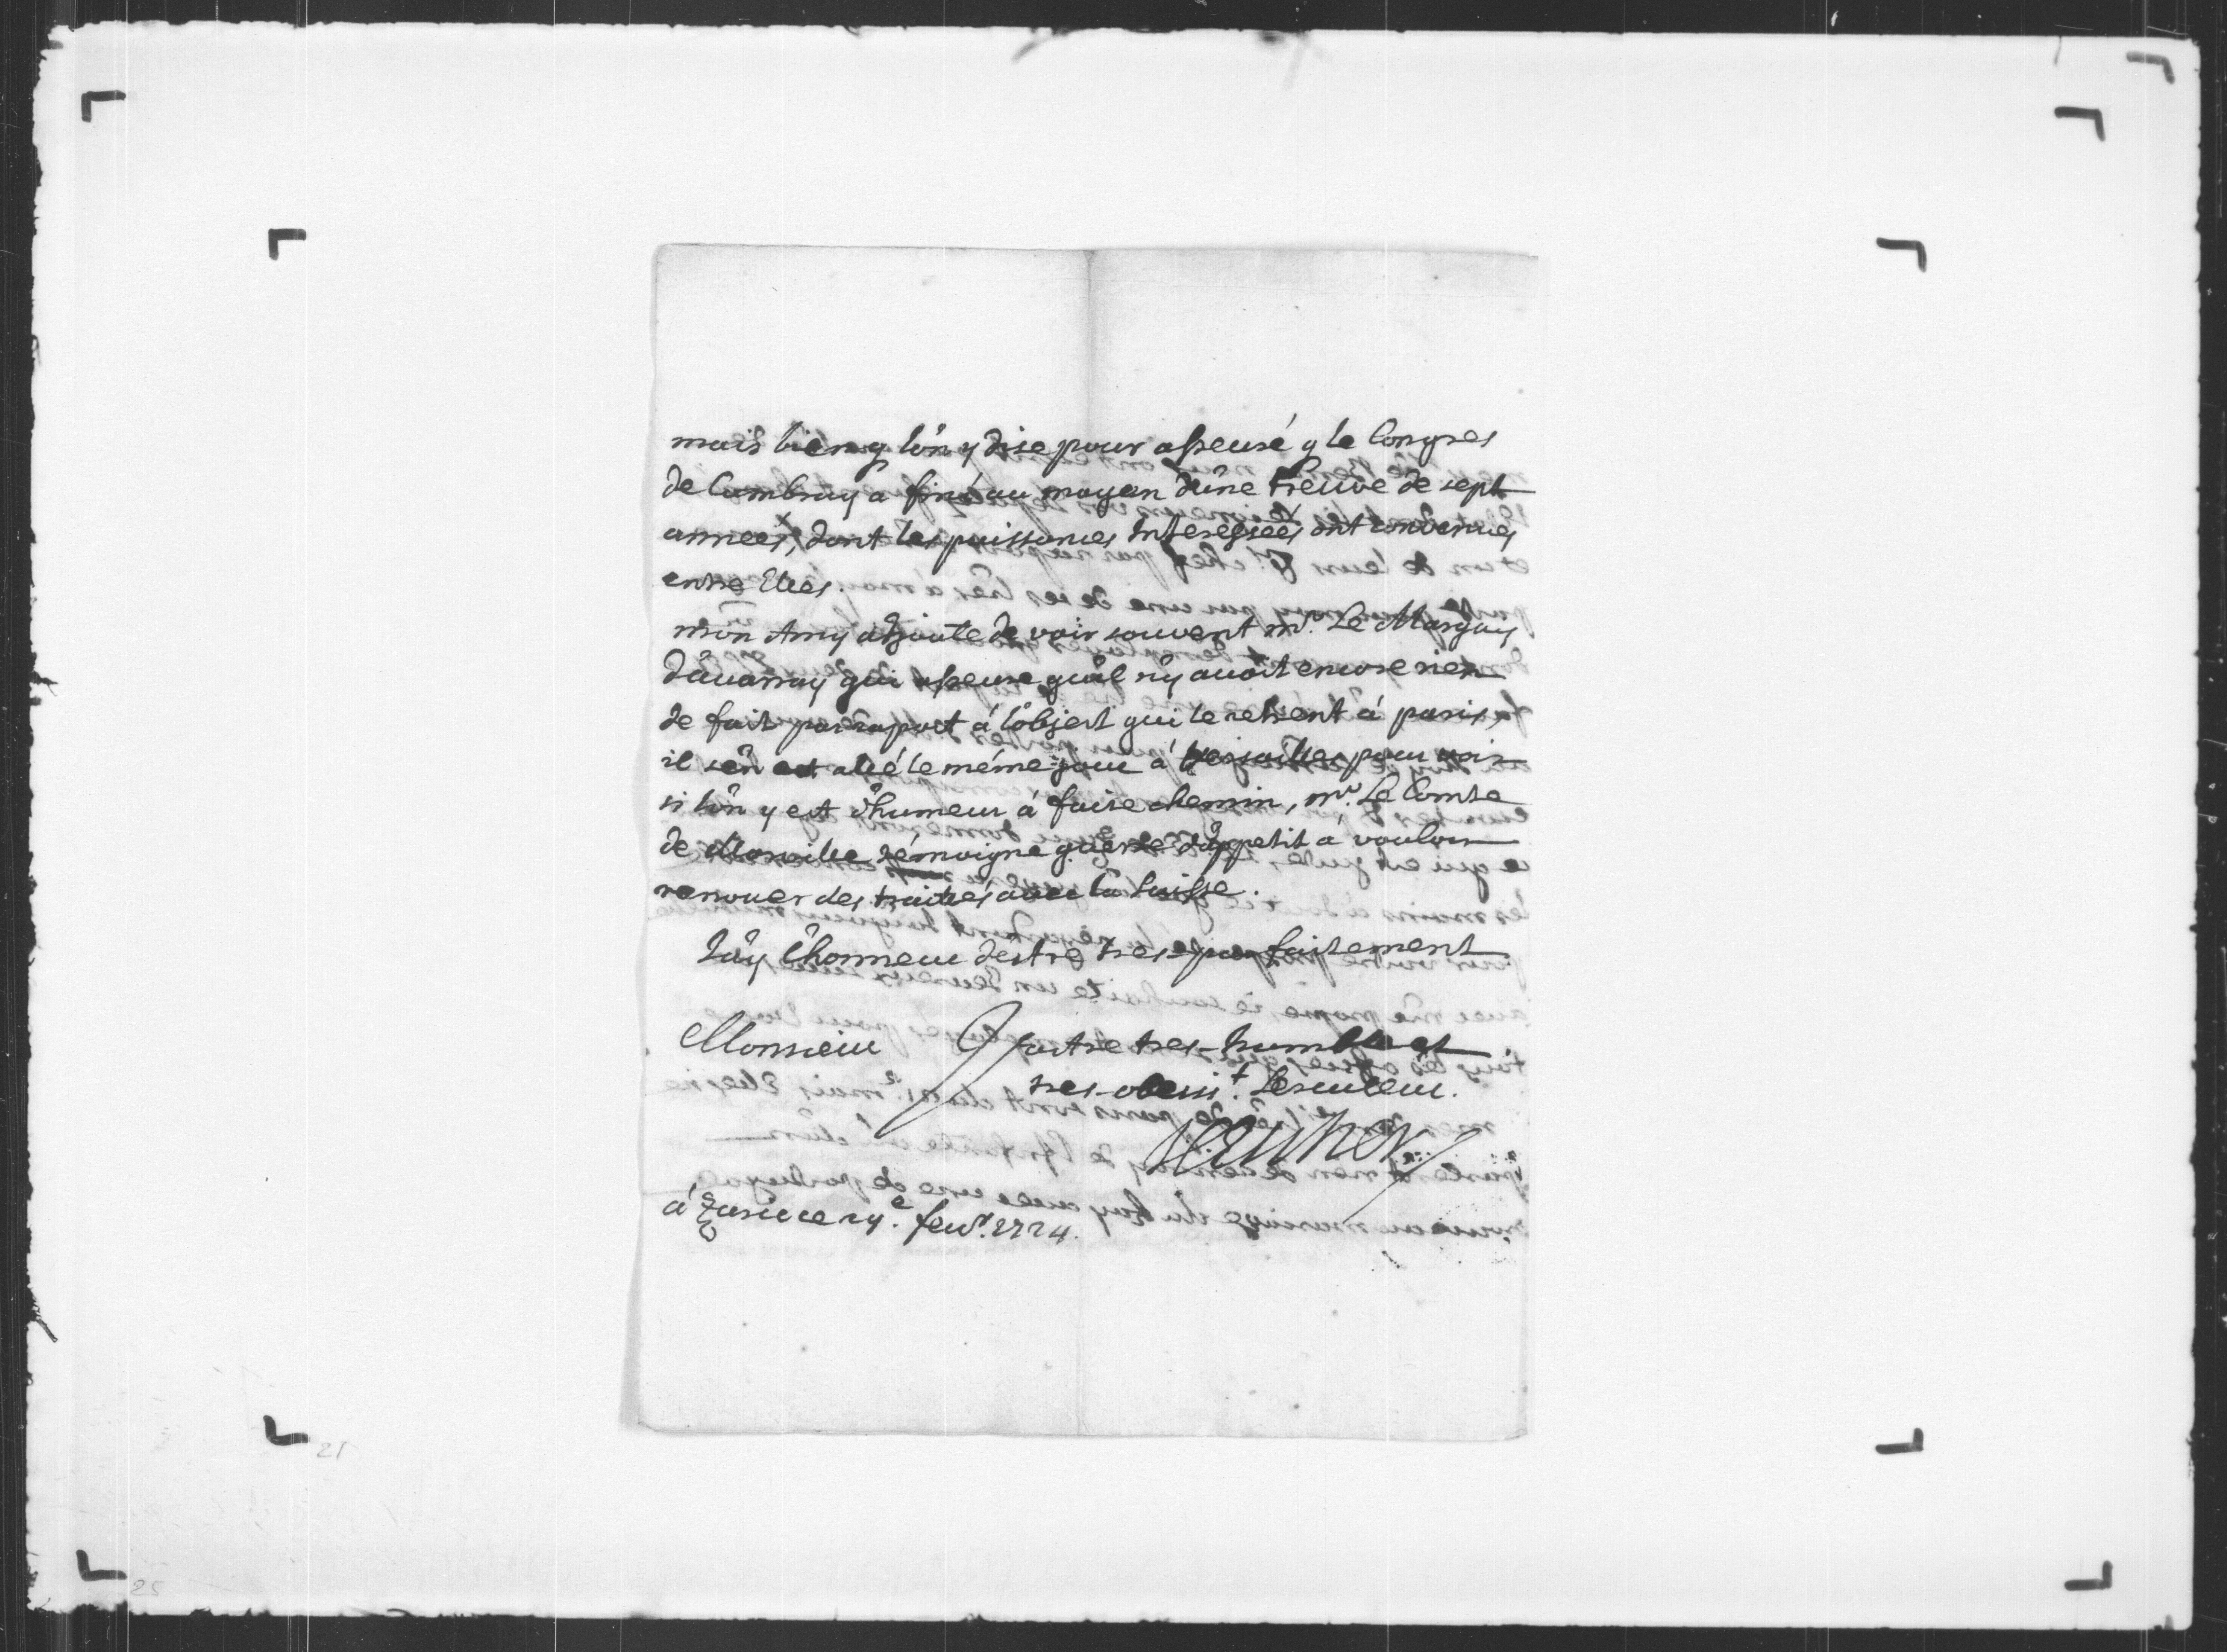 mais bien q l'ön y dise pour asseuré q le Congres
de Cambray a fini au moyen d'ûne treuve de sept
années, dont les puissances Interessées ont convenues
entre Elles.
mon Amy adjoute de voir souvent mr. Le Marquis
d'avarray qui asseure qu'il n'y avoit encore rien
de fait par raport à l'öbject qui le retient à paris,
il s'en est allé le même jour à Versailles pour voir
si l'ön y est d'humeur à faire chemin, mr. Le Comte
de Morville témoigne guerre d'appetit à vouloir
renouer des traites avec la Suisse.
J'ay l'honneur destre tres parfaitement
Monsieur Vostre tres-humble et
tres-obeisst. Serviteur.
à Zuric ce 19e. fevr. 1724.
21
25